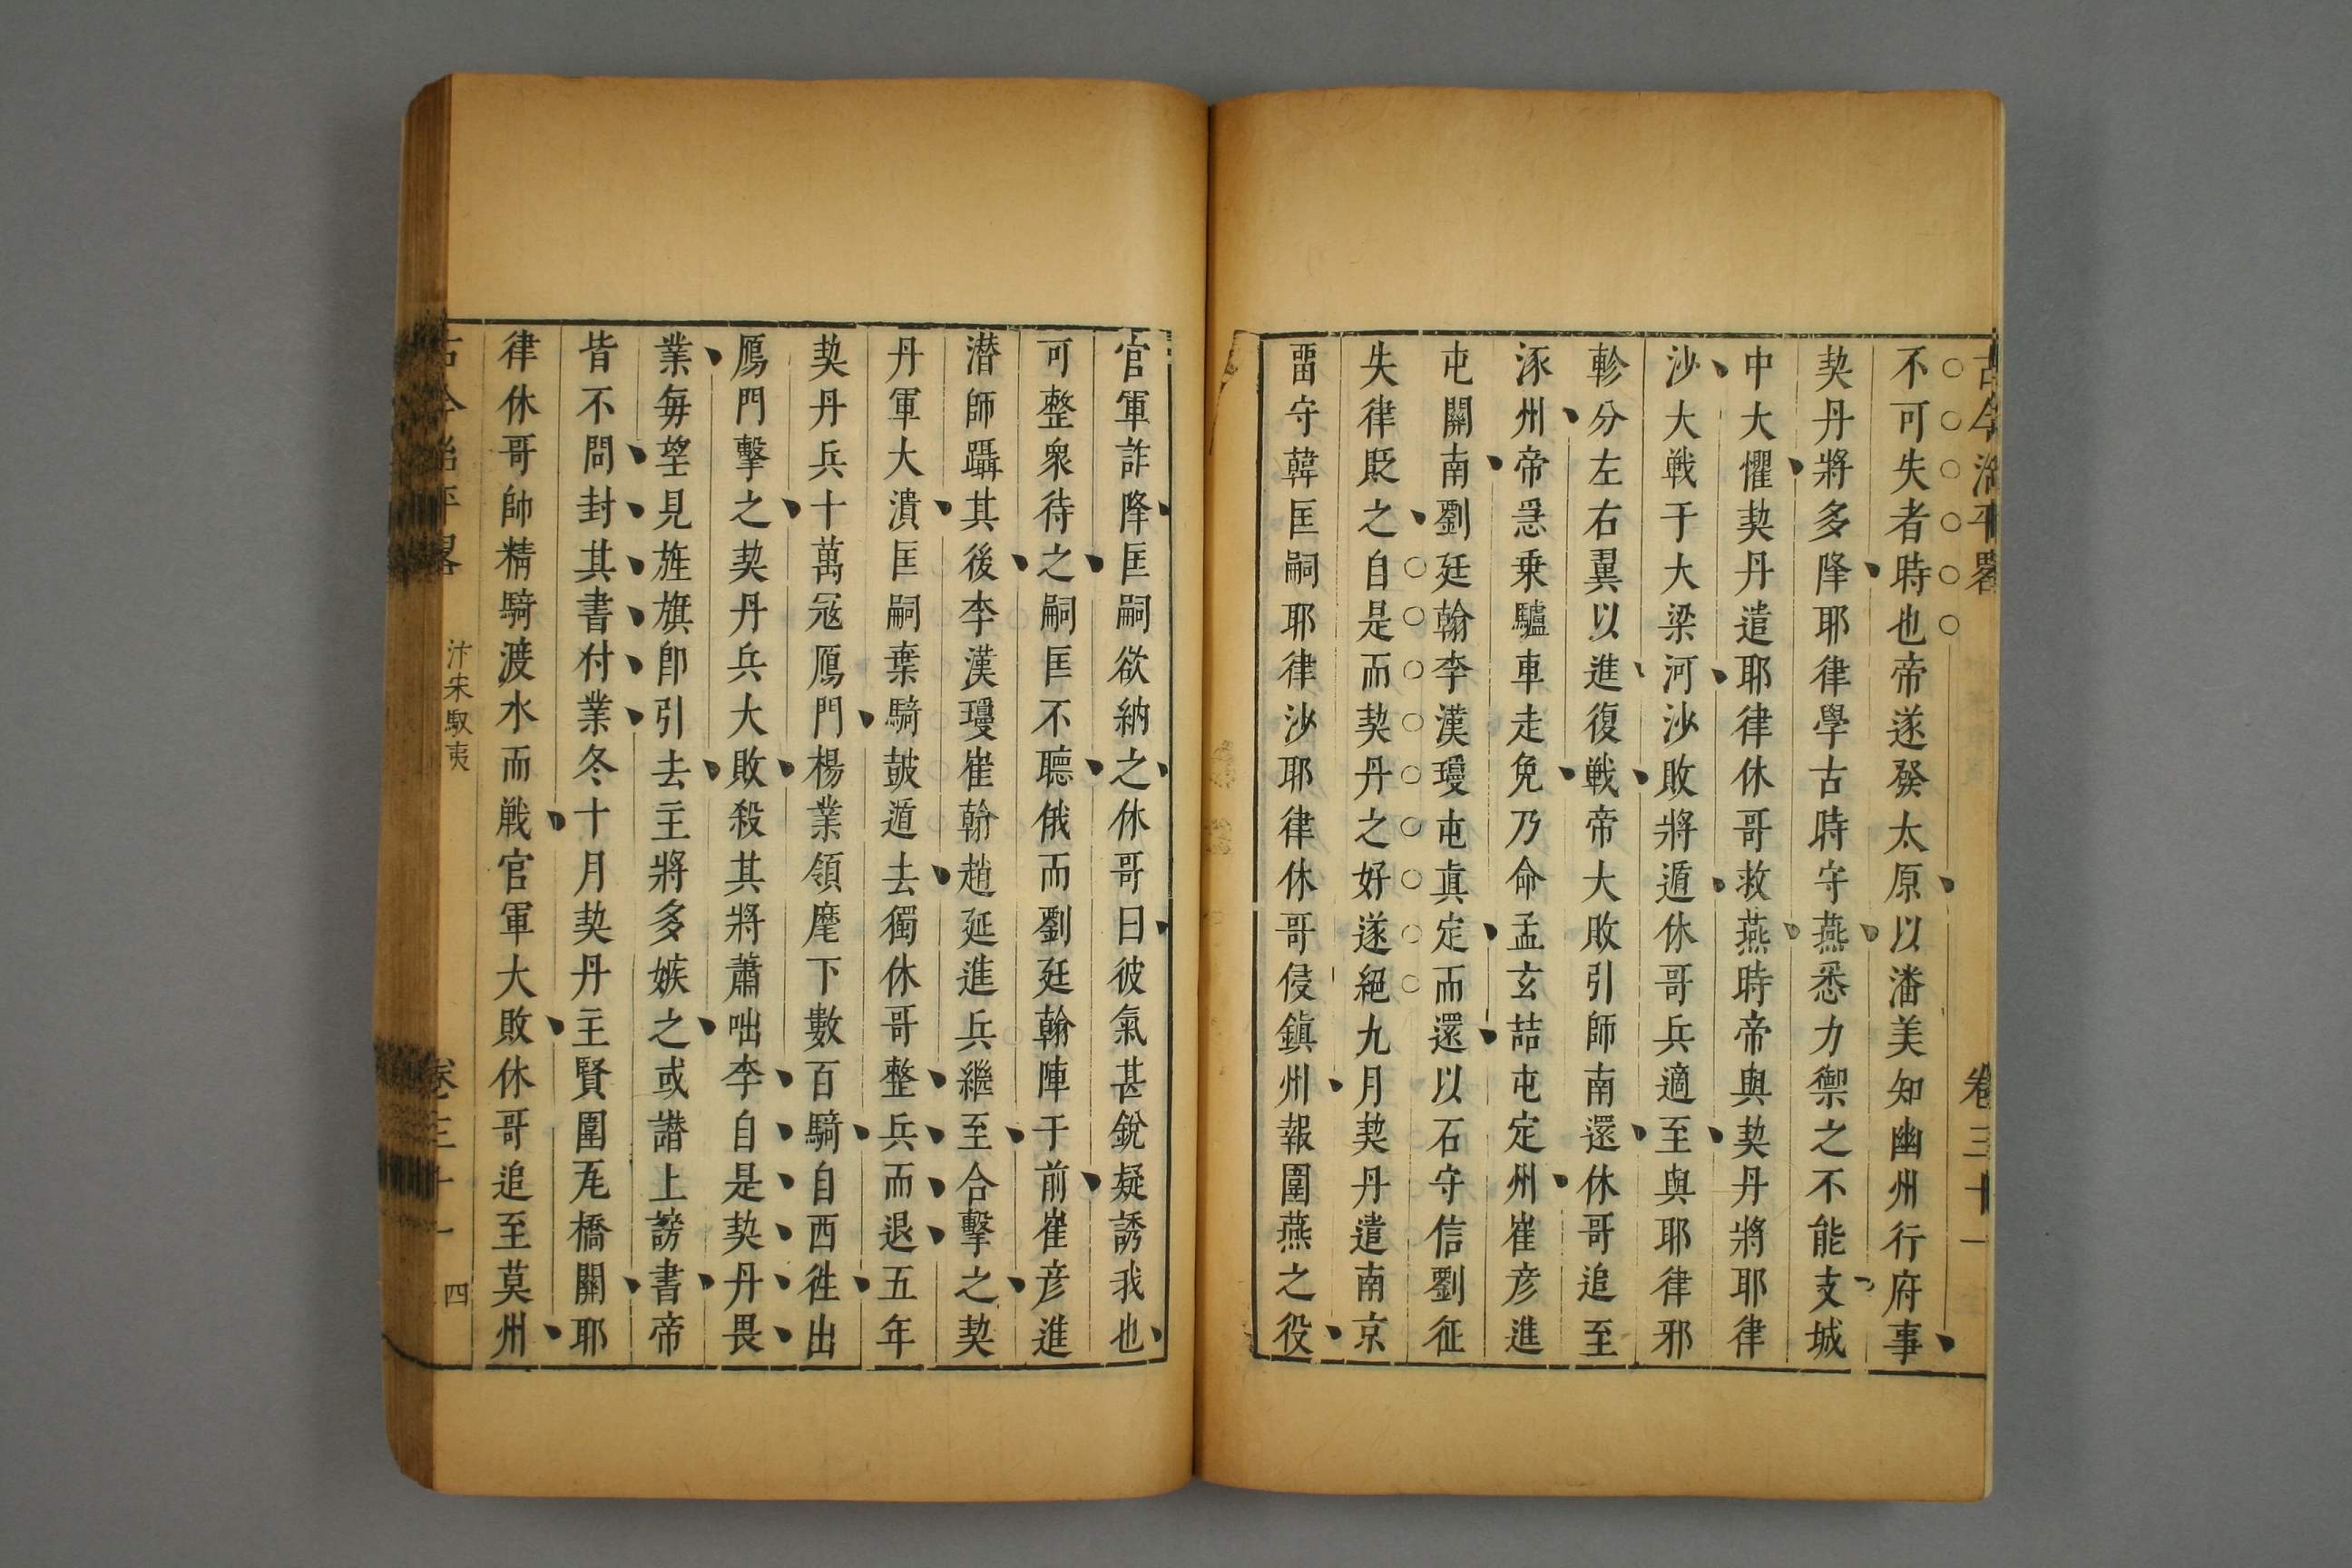 古今治平畧 卷三十一
不可失者時也帝遂發太原以潘美知幽州行府事
契丹將多降耶律學古時守燕悉力禦之不能支城
中大懼契丹遣耶律休哥救燕時帝與契丹將耶律
沙大戰于大梁河沙敗將遁休哥兵適至與耶律邪
軫分左右翼以進復戰帝大敗引師南還休哥追至
涿州帝急乗驢車走免乃命孟玄喆屯定州崔彥進
屯關南劉廷翰李漢瓊屯眞定而還以石守信劉征
失律貶之自是而契丹之好遂絕九月契丹遣南京
畱守韓匡嗣耶律沙耶律休哥侵鎮州報圍燕之役
官軍詐降匡嗣欲納之休哥曰彼氣甚銳疑誘我也
可整衆待之嗣匡不聽俄而劉廷翰陣于前崔彥進
潜師躡其後李漢瓊崔翰趙延進兵繼至合擊之契
丹軍大潰匡嗣棄騎皷遁去獨休哥整兵而退五年
契丹兵十萬冦鴈門楊業領麾下數百騎自西徃出
鴈門擊之契丹兵大敗殺其將蕭咄李自是契丹畏
業毎望見旌旗卽引去主將多嫉之或譖上謗書帝
皆不問封其書付業冬十月契丹主賢圍瓦橋關耶
律休哥帥精騎渡水而戰官軍大敗休哥追至莫州
古今治平畧 汴宋馭夷 卷三十一 四